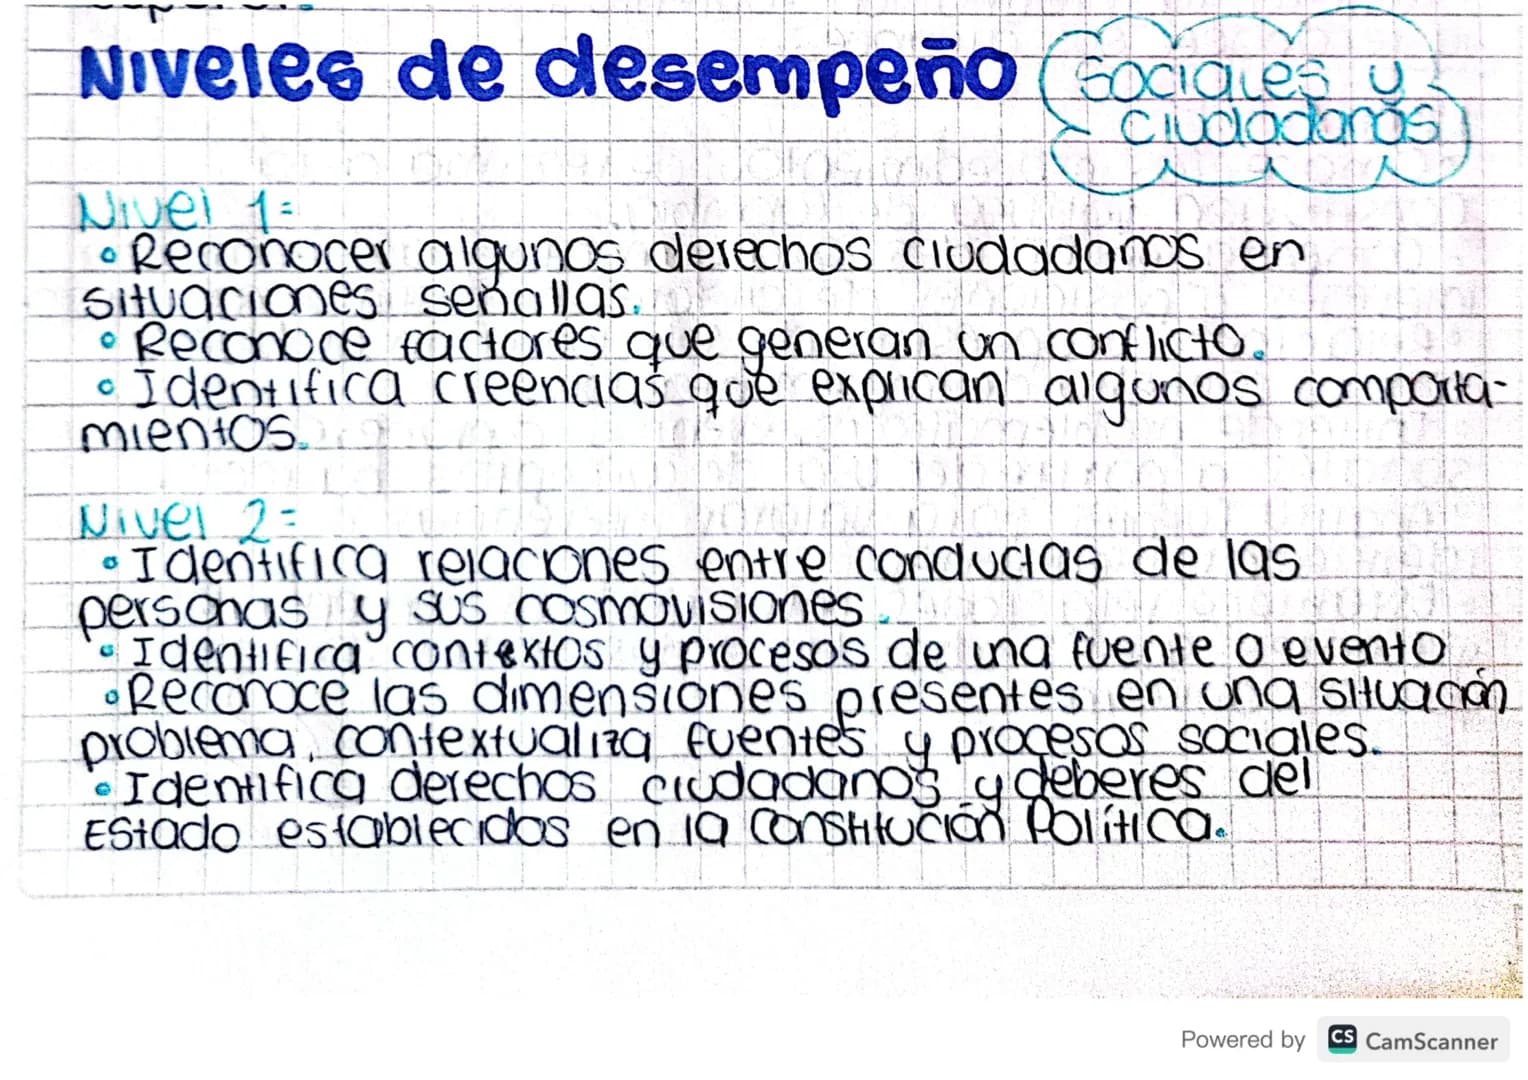 Niveles de desempeño
Sociales y
ciudadanas
Nivel 1=
• Reconocer algunos derechos ciudadanos en
situaciones señallas.
• Reconoce factores que generan un conflicto.
• Identifica creencias que explican algunos comporta-
mientos.
Nivel 2=
• Identifica relaciones entre conductas de las
personas y sus cosmovisiones.
• Identifica contextos y procesos de una fuente o evento
• Reconoce las dimensiones presentes en una situación
problema, contextualiza fuentes y procesos sociales.
• Identifica derechos ciudadanos y deberes del
Estado establecidos en la Constitución Política.
Powered by CS CamScanner